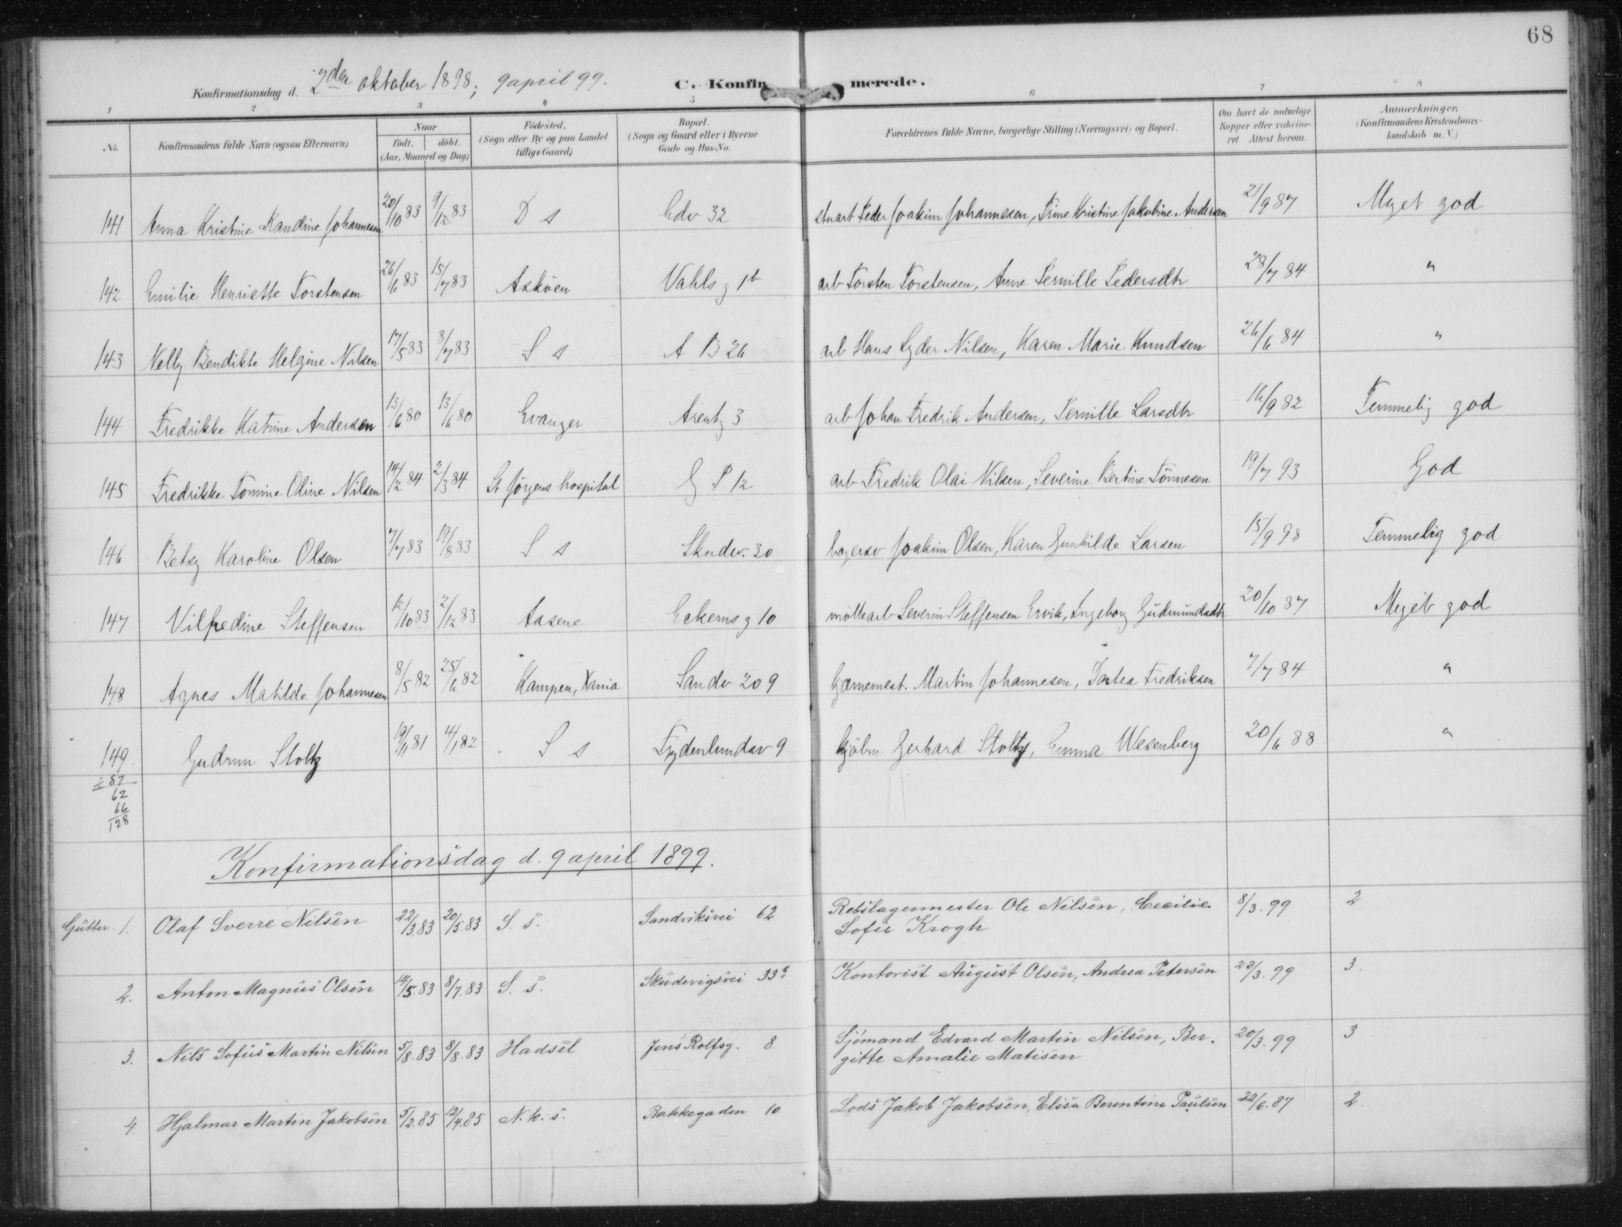 68
Konfirmationsdag d. 2den oktober 1898; 9 april 99. C. Konfirmerede.
1 2 3 4 5 6 7 8
No. Konfirmandens fulde Navn (ogsaa Efternavn) Naar født. døbt. (Aar, Maaned og Dag) Fødested. (Sogn eller By og paa Landet tillige Gaard) Bopæl. (Sogn og Gaard eller i Byerne Gade og Hus-No. Forældrenes fulde Navne, borgerlige Stilling (Næringsvei) og Bopæl. Om havt de naturlige Kopper eller vaccineret Attest herom. Anmærkninger. (Konfirmandens Kristendomskundskab m. V.)
141 Anna Kristine Nandine Johannesen 20/10 83 9/12 83 D s Edv 32 stuart Peder Joakim Johannesen, Trine Kristine Jakobine Andersen 21/9 87 Meget god
142 Emilie Henriette Torstensen 26/6 83 15/7 83 Askøen Vahls g 1b arb Torsten Torstensen, Anne Pernille Pedersdtr 28/7 84 "
143 Nelly Bendikte Helgine Nilsen 17/5 83 8/7 83 S s A B 26 arb Hans Lyder Nilsen, Karen Marie Knudsen 26/6 84 "
144 Fredrikke Katrine Andersen 13/6 80 13/6 80 Evanger Arentz 3 arb Johan Fredrik Andersen, Pernille Larsdtr 16/9 82 Temmelig god
145 Fredrikke Tomine Oline Nilsen 14/2 84 2/3 84 St Jørgens Hospital G P 12 arb Fredrik Olai Nilsen, Severine Bertine Tønnesen 19/7 93 God
146 Betsy Karoline Olsen 7/7 83 19/8 83 S s Skudev. 30 Joakim Olsen, Karen Gunhilde Larsen 15/9 98 Temmelig god
147 Vilfredine Steffensen 12/10 83 2/12 83 Aasene Eckerns g 10 møllearb Severin Steffensen Ervik, Ingeborg Gudmundsdtr 20/10 87 Meget god
148 Agnes Matilde Johannesen 8/5 82 25/6 82 Kampen, Xania Sandv 209 Martin Johannesen, Dortea Fredriksen 7/7 84 "
149 Gudrun Stoltz 19/11 81 4/1 82 S s Frydenlundsv 9 kjøbm Gerhard Stoltz, Emma Wesenberg 20/6 88 "
÷ 87
62
66
128
Konfirmationsdag d. 9 april 1899.
Gutter. 1. Olaf Sverre Nilsen 22/3.83 20/5.83 S. s. Sandviksvei 62 Rebslagermester Ole Nilsen, Cecilie 8/3.99 2
Sofie Krogh
2. Anton Magnus Olsen 19/5.83 8/7.83 S. s. Skudevigsvei 33 Kontorist August Olsen, Andrea Petersen 22/3.99 3.
3. Nils Sofus Martin Nilsen 5/8.83 8/8.83 Hadsel Jens Rolfsg. 8 Sjømand Edvard Martin Nilsen, Ber- 20/3.99 3
gitte Amalie Matisen
4. Hjalmar Martin Jakobsen 5/2.85 12/4.85 N. k. s. Bakkegaden 10 Lods Jakob Jakobsen, Elisa Berentine Paulsen 22/6.87 2